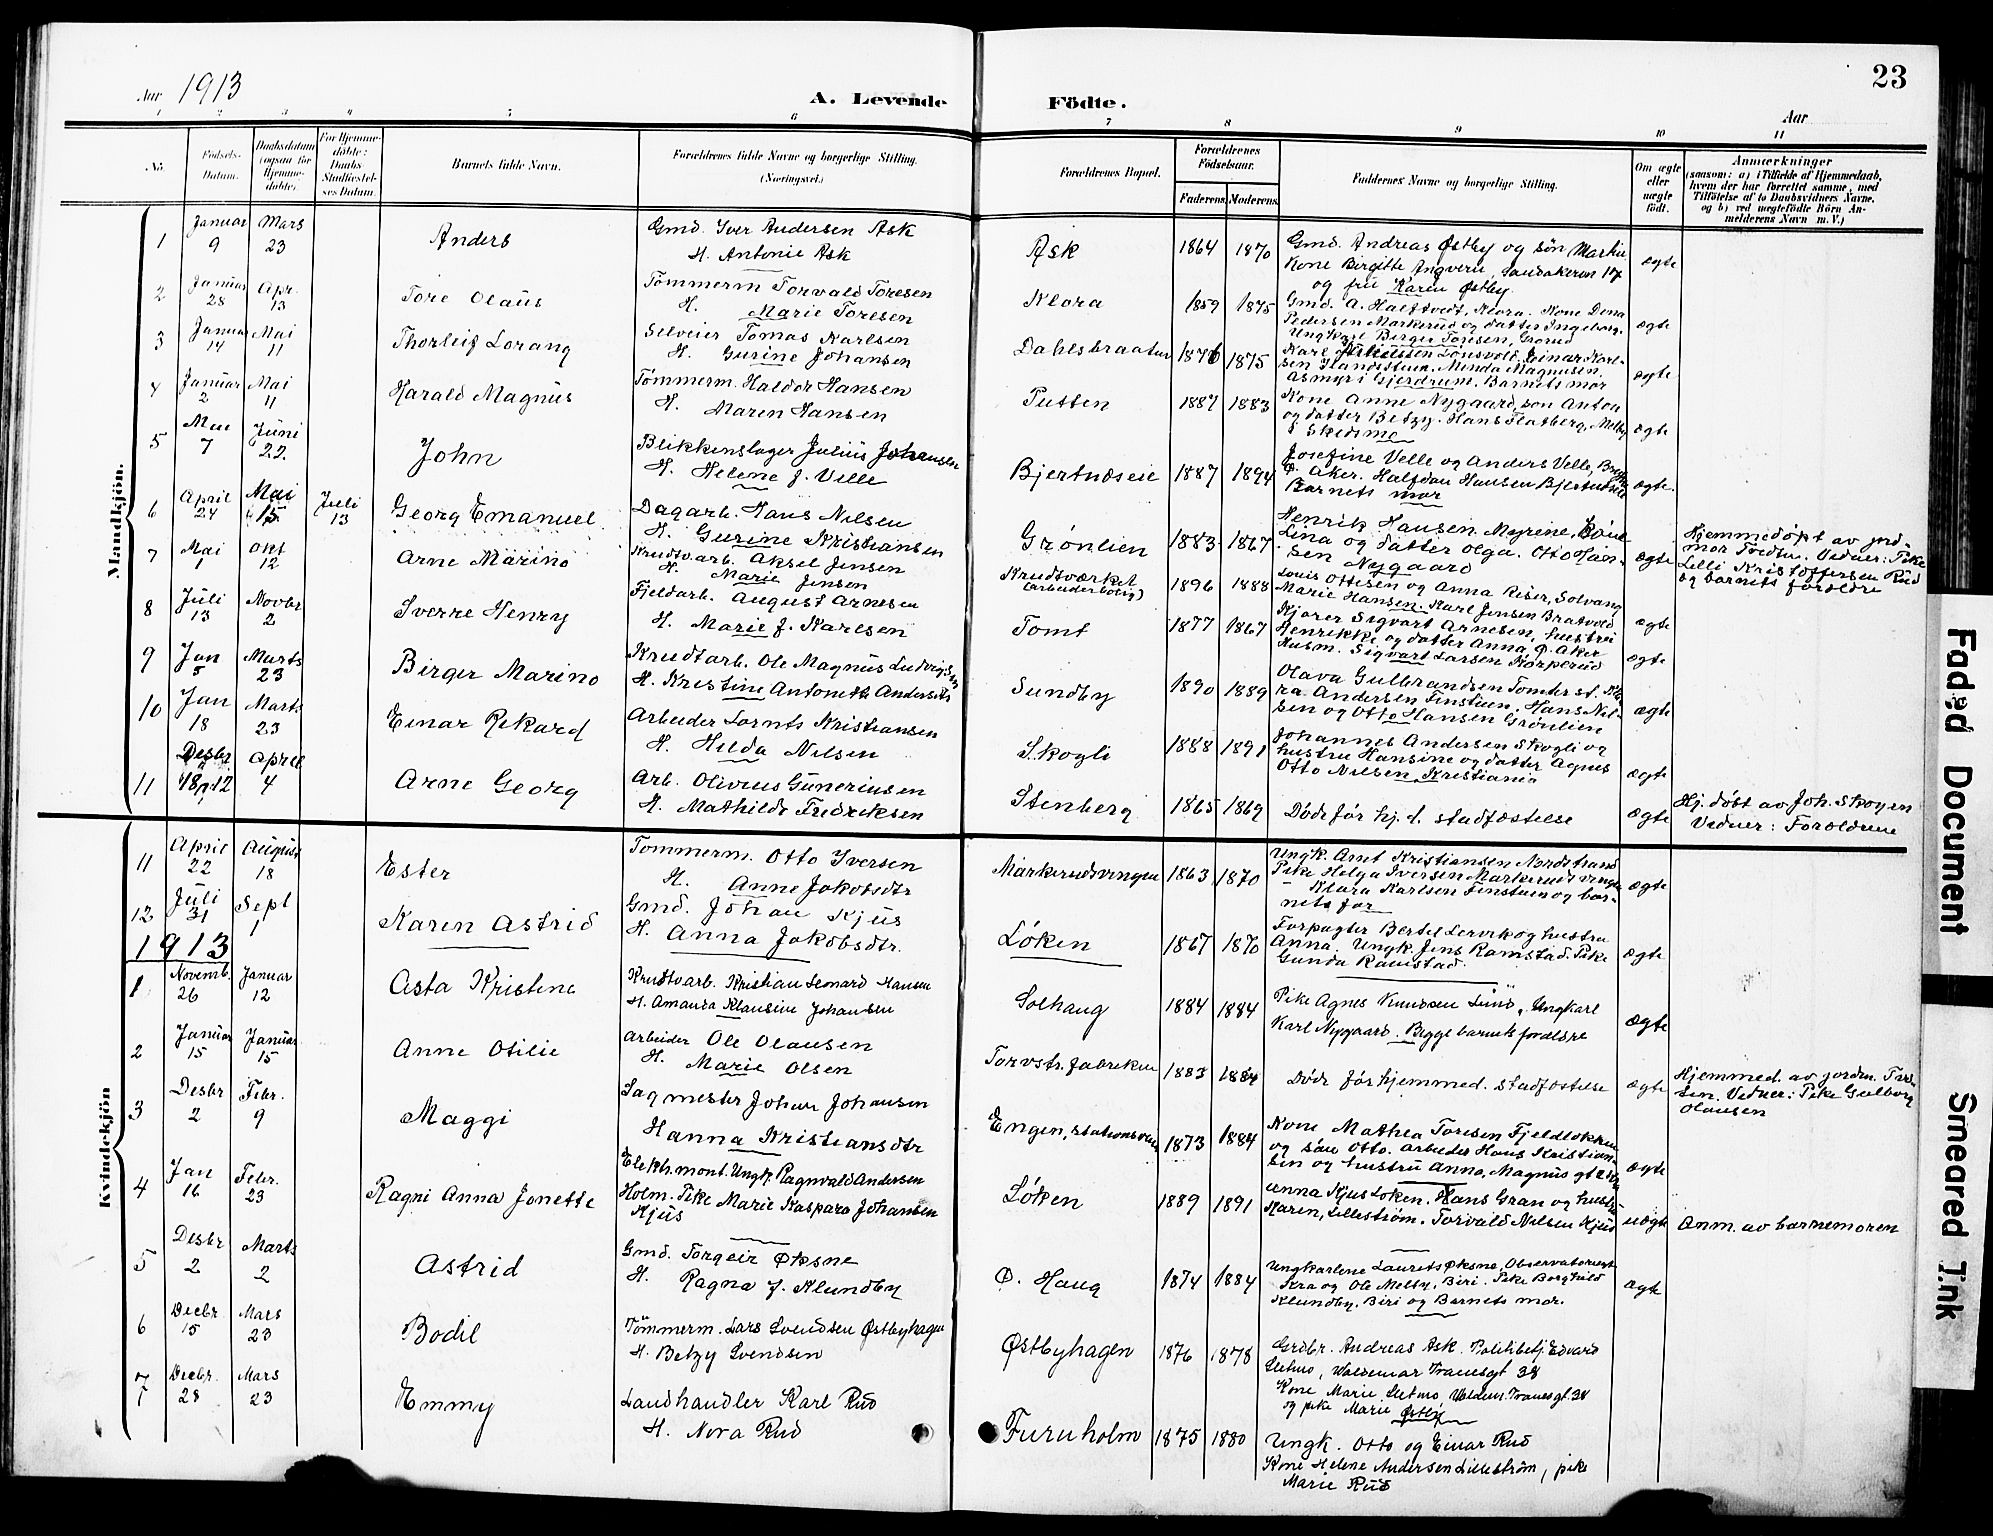 23
Aar 1913
A. Levende Födte.
Aar
1 2 3 4 5 6 7 8 9 10 11
No.
Födsels-Datum.
Daabsdatum (ogsaa for Hjemme-döbte).
For Hjemme-döbte: Daabs-Stadfæstel-ses Datum.
Barnets fulde Navn.
Forældrenes fulde Navne og borgerlige Stilling. (Næringsvei.)
Forældrenes Bopæl.
Forældrenes Födselsaar.
Faderens. Moderens.
Faddernes Navne og borgerlige Stilling.
Om ægte eller uægte födt.
Anmærkninger
(saasom: a) i Tilfælde af Hjemmedaab, hvem der har forrettet samme, med Tilföielse af to Daabsvidners Navne, og b) ved uægtefödte Börn An-melderens Navn m. V.)
Mandkjön.
1 Januar 9 Mars 23 Anders Gmd. Iver Andersen Ask
H. Antonie Ask
Ask 1864 1870 Gmd. Andreas Østby og søn
Kone Birgitte
og frü Karen Østby
ægte
2 Januar 28 Apr. 13 Tore Olaüs Tømmerm Torvald Toresen
H. Marie Toresen
Klora 1859 1875 Gmd. A. Halftvedt, Klora. Kone
Pedersen Markerud og datter Ingeborg.
Ungkarl Birger Toresen, Grorud
ægte
3 Januar 14 Mai 11 Thorleif Lorang Selveier Tomas Karlsen
H. Gurine Johansen
Dahlsbraaten 1876 1875 Karl Einar Karl-
sen Minda Magnusen
Asmyr i Gjerdrum. Barnets mor
ægte
4 Januar 2 Mai 11 Harald Magnüs Tømmerm. Haldor Hansen
H. Maren Hansen
Putten 1887 1883 Kone Anne Nygaard, søn Anton
og datter Betzy. Hans Flatberg, Melby
i Skedsmo
ægte
5 Mai 7 Jüni 22 John Blikkenslager Julius Johansen
H. Helene f. Velle
Bjertnæseie 1887 1894 Josefine Velle og Anders Velle,
Ø. Aker. Halfdan Hansen Bjertnæseie
Barnets mor
ægte.
6 April 24 Mai 15 Juli 13 Georg Emanuel Dagarb. Hans Nilsen
H. Gurine Kristiansen
Grønlien 1883 1867 Henrik Hansen Myrene,
Lina og datter Olga. Otto Han-
sen Nygaard
ægte
Hjemmedøpt av jord-
mor Tvedten. Vidner: Pike
Lilli Kristoffersen Rüd
og barnets forældre
7 Mai 1 Okt 12 Arne Marino Krudtvarb. Aksel Jensen
H. Marie Jensen
Krudtværket
(arbeiderbolig)
1896 1888 Louis Ottesen og Anna Riser, Solvang
Marie Hansen. Karl Jensen Bratvold
ægte
8 Juli 13 Novbr 2 Sverre Henry Fjeldarb. August Arnesen
H. Marie f. Karlsen
Tomt 1877 1867 Kjører Sigvart Arnesen, hustru
Henrikke og datter Anna, Ø. Aker
Husm. Sigvart Larsen Korperud
ægte
9 Jan 5 Marts 23 Birger Marino Krudtarb. Ole Magnüs Ludvigsen
H. Kristine Antonette Andersen
Sundby 1890 1889 Olava Gulbrandsen Tomter st. Kla-
ra Andersen Finstuen. Hans Nil-
sen og Otto Hansen Grønlien
ægte
10 Jan 18 Marts 23 Einar Rikard Arbeider Lornts Kristiansen
H. Hilda Nilsen
Skogli 1888 1891 Johannes Andersen Skogli og
hustru Hansine og datter Agnes
Otto Nilsen, Kristiania
ægte
11 Desbr. 18 12 April 4 Arne Georg Arb. Olivius Güneriusen
H. Mathilde Fredriksen
Stenberg 1865 1869 Døde før hj. d. stadfæstelse ægte
Hj. døbt av Joh. Skogen
Vidner: Forældrene
11 April 22 August 18 Ester Tømmerm. Otto Iversen
H. Anne Jakobsdtr
Markerudvingen 1863 1870 Ungk. Arnt Kristiansen Nordstrand
Pike Helga Iversen Markerudvingen
Klara Karlsen Finstuen og bar-
nets far
ægte
12 Juli 31 Sept 1 Karen Astrid Gmd. Johan Kjüs
H. Anna Jakobsdtr.
Løken 1867 1870 Forpagter Bertel Lervik og hustru
Anna. Ungk. Jens Ramstad. Pike
Gunda Ramstad.
ægte
1913
Kvindekjön
1 Novemb. 26 Januar 12 Asta Kristine Krudtvarb. Kristian Lenard Hansen
H. Amanda Klausine Johansen
Solhaug 1884 1884 Pike Agnes Knudsen Lund, Ungkarl
Karl Nygaard. Begge barnets forældre
ægte
2 Januar 15 Januar 15 Anne Otilie Arbeider Ole Olausen
H. Marie Olsen
Torvstr.fabrikken 1883 1884 Døde før hjemmed. stadfæstelse ægte
Hjemmed. av jordm. Tved-
ten. Vidner: Pike Gulborg
Olausen
3 Desbr 2 Febr. 9 Maggi Sagmester Johan Johansen
Hanna Kristiansdtr
Engen, stationsveien 1873 1884 Kone Mathea Toresen Fjeldlokken
og søn Otto. Arbeider Hans Kristian-
sen og hustru Anna, Magnus gt
ægte
4 Jan 16 Febr. 23 Ragni Anna Jonette Elektr.mont. Ungk. Ragnvald Andersen
Holm. Pike Marie Kaspara Johansen
Kjüs
Løken 1889 1891 Anna Kjus Løken. Hans Gran og hustru
Karen, Lillestrøm. Torvald Nilsen Kjus
uægte Anm. av barnemoren
5 Desbr 2 Marts 2 Astrid Gmd. Torgeir Øksne
H. Ragna f. Klundby
Ø. Haug 1874 1884 Ungkarlene Laurits Øksne, Observatoriegt
Kra og Ole Melby, Biri. Pike Borghild
Klundby. Biri og Barnets mor.
ægte
6 Decbr 15 Mars 23 Bodil Tömmerm. Lars Svendsen Østbyhagen
H. Betzy Svendsen
Østbyhagen 1876 1878 Grdbr. Andreas Ask. Politibetj. Edvard
Sletmo, Waldemar Tranesgt 38
Kone Marie Sletmo Valdem. Tranesgt. 38
og pike Marie Østby
7 Decbr. 28 Mars 23 Emmy Landhandler Karl Rud
H. Nora Rud
Furuholm 1875 1880 Ungk. Otto og Einar Rud
Kone Helene Andersen Lilleström, pike
Marie Rud
Faded Document
Smeared Ink